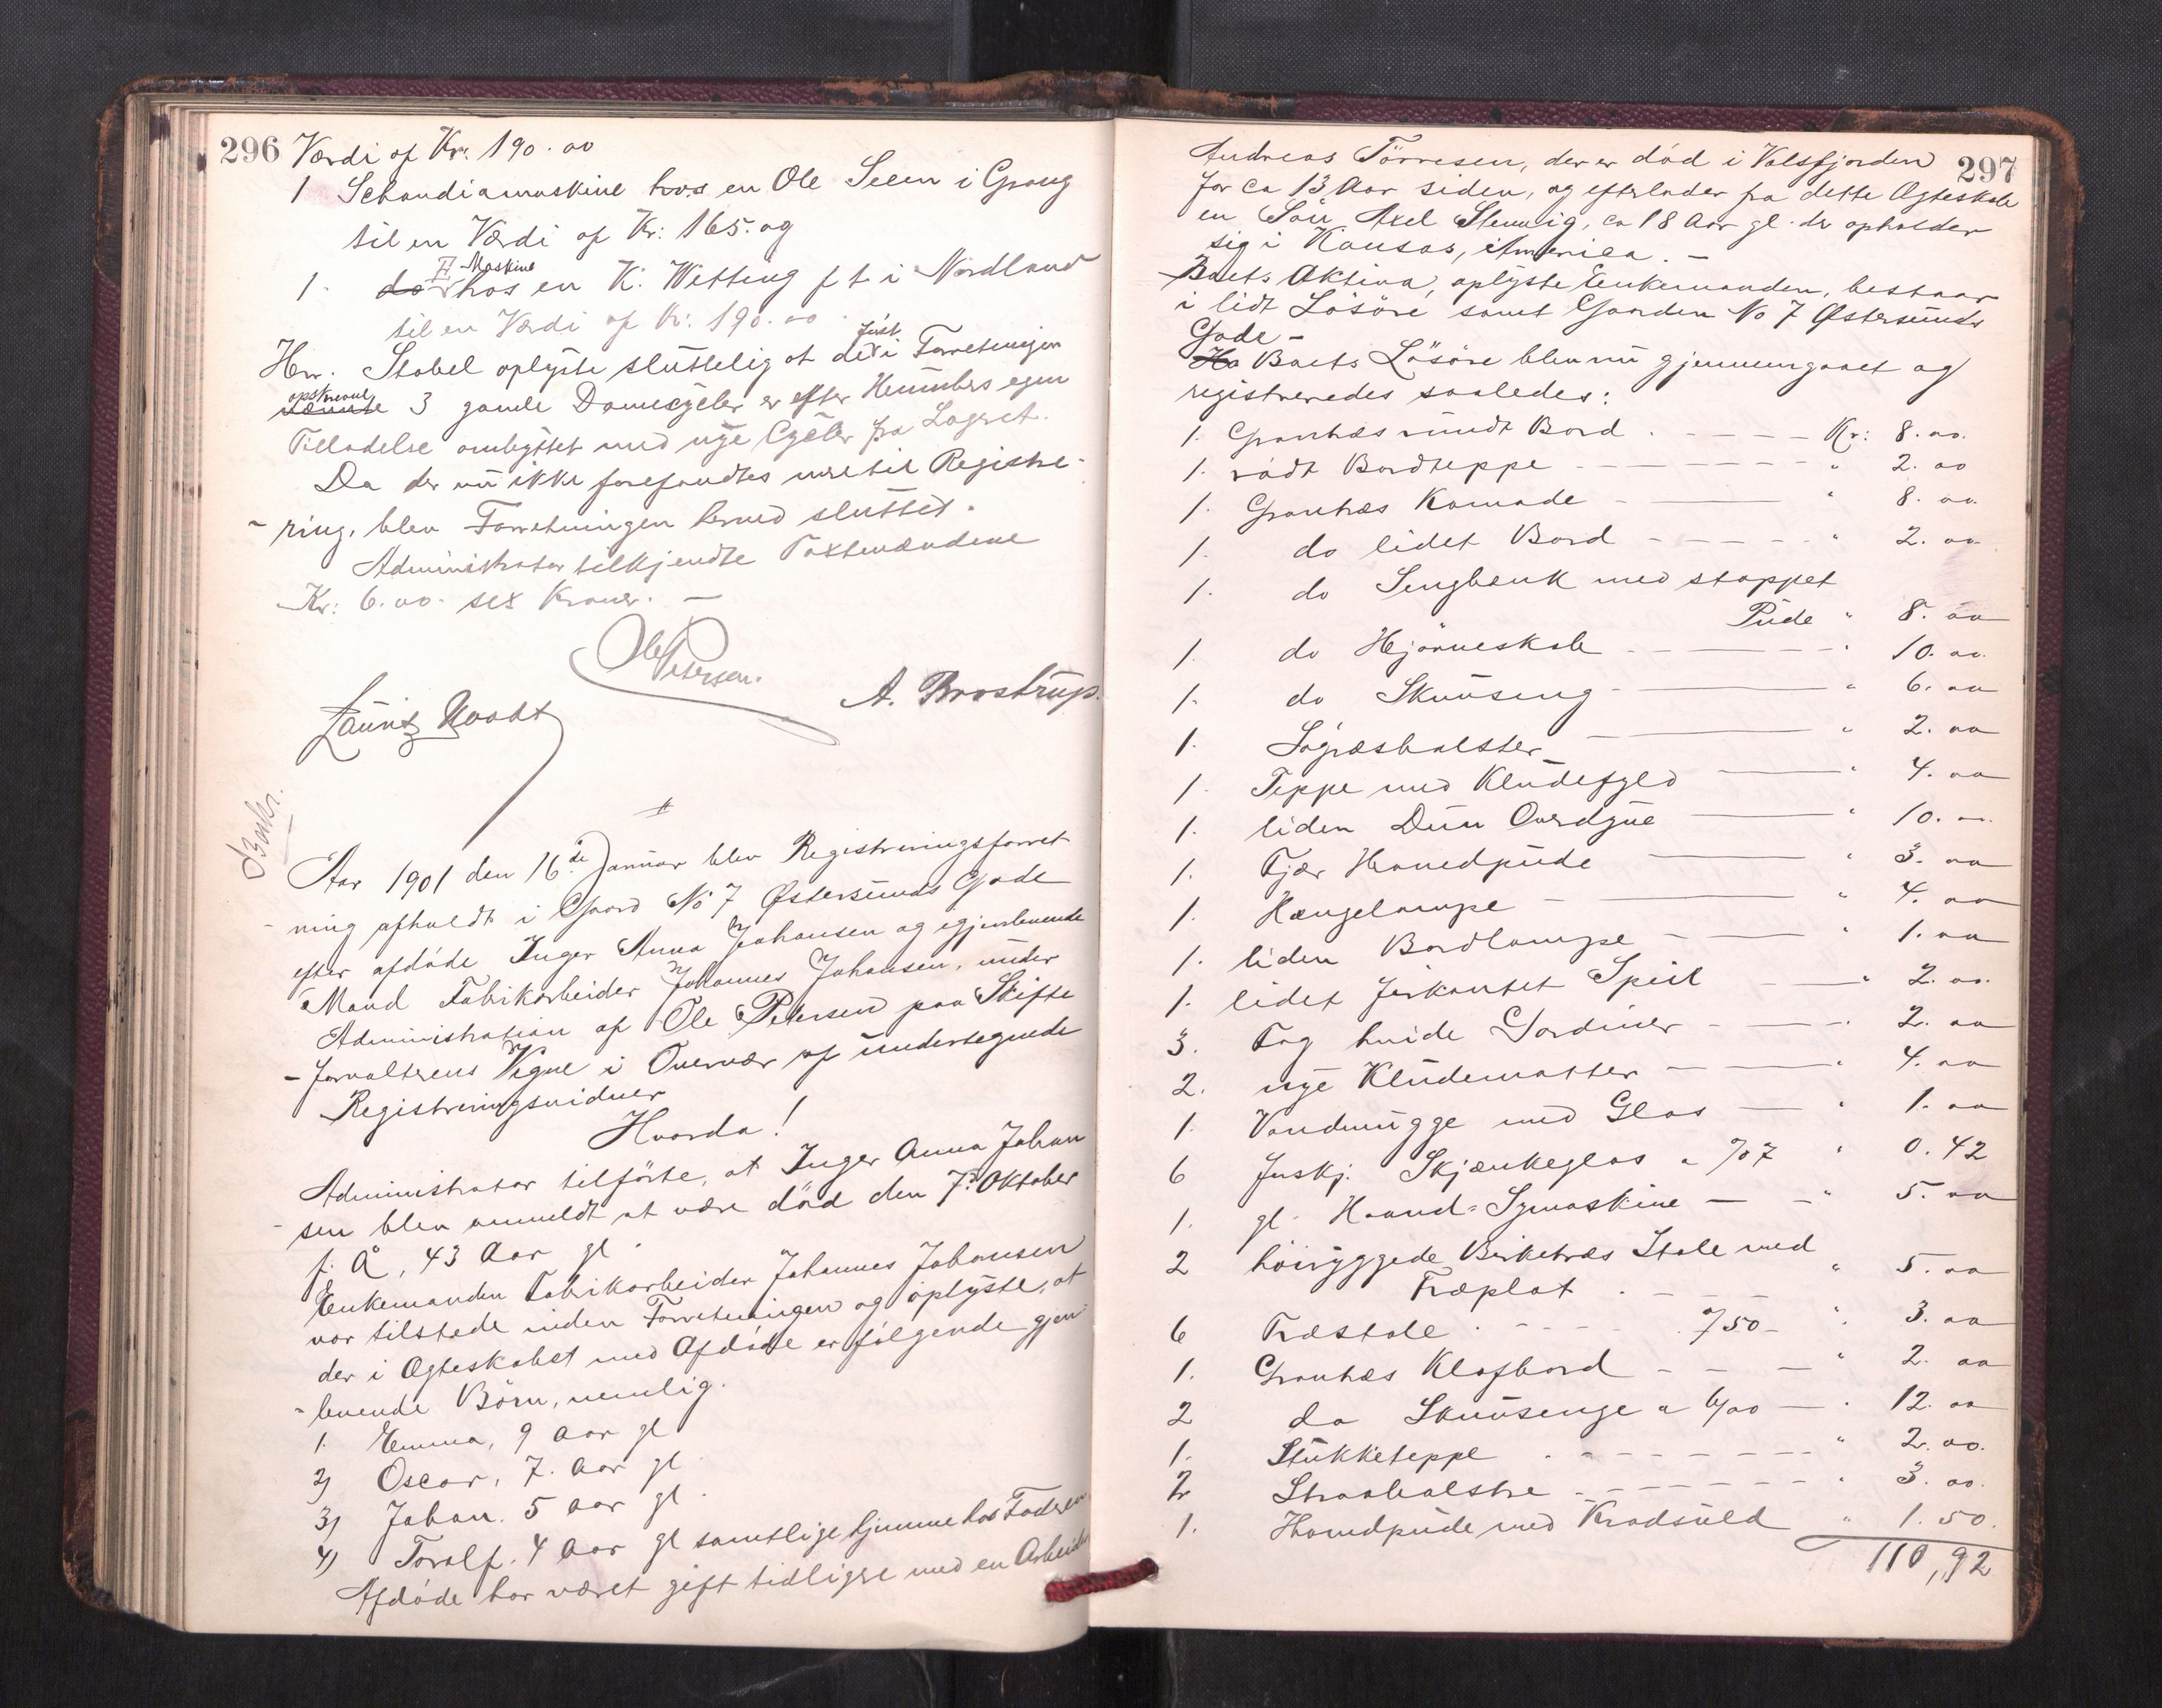 296 Værdi af Kr: 190.00
1 Schandiamaskine hos en Ole Seem i Grong
til en Værdi af Kr: 165. og
1. do II Maskine hos en K. Wetting p t i Nordland
til en Værdi af Kr: 190.00
Herr. Stabel oplyste sluttelig at de først i Forretningen
nævnte opskrevne 3 gamle Damecycler er efter Hemmbers egen
Tilladelse ombyttet med nye Cycler fra Lageret.
Da der nu ikke forefandtes mere til Registre-
-ring, blev Forretningen hermed sluttet.
Administrator tilkjendte Taxtmændene
Kr: 6.00. sex Kroner. —
Ole Petersen.
A. Brostrup.
Lauritz
Aar 1901 den 16de Januar blev Registreringsforret
-ning afholdt i Gaard No 7 Østersunds Gade
efter afdøde Inger Anna Johansen og igjenlevende
Mand Fabrikarbeider Johannes Johansen, under
Administration af Ole Petersen paa Skifte
-forvalterens Vegne i Overvær af undertegnede
Registreringsvidner
Hvorda!
Administrator tilførte, at Inger Anna Johan
-sen blev anmeldt at være død den 7. Oktober
f. A, 43 Aar gl.
Enkemanden Fabrikarbeider Johannes Johansen
var tilstede under Forretningen og oplyste, at
der i Ægteskabet med Afdøde er følgende gjen
-levende Børn, nemlig.
1. Emma, 9 Aar gl
2) Oscar, 7. Aar gl.
3) Johan. 5 Aar gl.
4) Toralf. 4 Aar gl samtlige hjemme hos Faderen
Afdøde har været gift tidligere med en Arbeider
297
Andreas Tørresen, der er død i Valsfjorden
for ca 13 Aar siden, og efterlader fra dette Ægteskab
en Søn Axel Stenvig, ca 18 Aar gl. der opholder
sig i Kansas, Amerika. —
Boets Aktiva, oplyste Enkemanden, bestaar
i lidt Løsøre samt Gaarden No 7 Østersunds
Gade —
Ha Boets Løsøre blev nu gjennemgaaet og
registreredes saaledes:
1. Grantræs rundt Bord . Kr: 8.00.
1. rødt Bordteppe " 2.00
1. Grantræs Komode " 8.00
1. do lidet Bord " 2.00
1. do Sengbenk med stoppet
Pude " 8.00
1. do Hjørneskab " 10.00.
1. do Skuvseng " 6.00
1. Søgræsbolster " 2.00
1. Teppe med Kludefyld " 4.00
1. liden Dun Overdyne " 10.00.
1. Fjær Hovedpude " 3.00
1. Hængelampe " 4.00
1. liden Bordlampe " 1.00
1. lidet firkantet Speil " 2.00.
3. Fag hvide Gardiner " 2.00
2. nye Kludematter " 4.00
1. Vandmugge med Glas " 1.00
6 forskj. Skjænkeglas a /07 " 0.42
1. gl. Haand-Symaskine " 5.00
2 høiryggede Birketræs Stole med
Træplat " 5.00
6 Træstole /50 " 3.00
1. Grantræs Klafbord " 2.00
2 do Skuvsenge a 6/00 " 12.00
1. Stukketeppe " 2.00.
2 Straabolstre " 3.00.
1. Hovedpude med Kradsuld " 1.50.
110,92